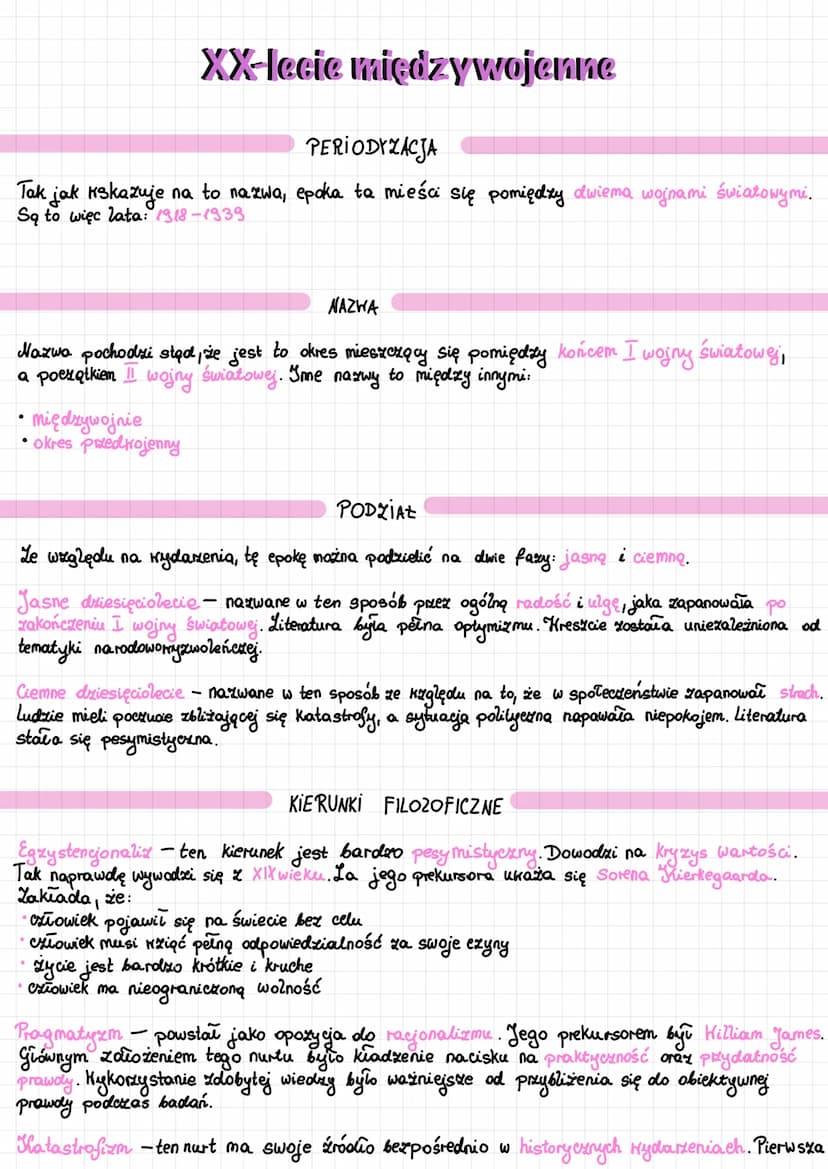 XX-lecie międzywojenne
PERIODYZACJA
Tak jak wskazuje na to nazwa, epoka ta mieści się pomiędzy dwiema wojnami światowymi.
Są to więc lata: 1918-1939
NAZWA
Nazwa pochodzi stąd, że jest to okres mieszczący się pomiędzy końcem I wojny światowej,
a początkiem II wojny światowej. Inne nazwy to między innymi:
• międzywojnie
• okres przedwojenny
PODZIAŁ
Ze względu na wydarzenia, tę epokę można podzielić na dwie fazy: jasną i ciemną.
Jasne dziesięciolecie – nazwane w ten sposób przez ogólną radość i ulgę, jaka zapanowała po
zakończeniu I wojny światowej. Literatura była pełna optymizmu. Wreszcie została uniezależniona od
tematyki narodowowyzwoleńczej.
Ciemne dziesięciolecie – nazwane w ten sposób ze względu na to, że w społeczeństwie zapanował strach.
Ludzie mieli poczucie zbliżającej się katastrofy, a sytuacja polityczna napawała niepokojem. Literatura
stała się pesymistyczna.
KIERUNKI FILOZOFICZNE
Egzystencjonaliz – ten kierunek jest bardzo pesymistyczny. Dowodzi na kryzys wartości.
Tak naprawdę wywodzi się z XIX wieku. Za jego prekursora uważa się Sorena Kierkegaarda.
Zakłada, że:
• człowiek pojawił się na świecie bez celu
• człowiek musi wziąć pełną odpowiedzialność za swoje czyny
• życie jest bardzo krótkie i kruche
• człowiek ma nieograniczoną wolność
Pragmatyzm – powstał jako opozycja do racjonalizmu. Jego prekursorem był William James.
Głównym założeniem tego nurtu było kładzenie nacisku na praktyczność oraz przydatność
prawdy. Wykorzystanie zdobytej wiedzy było ważniejsze od przybliżenia się do obiektywnej
prawdy podczas badań.
Katastrofizm – ten nurt ma swoje źródło bezpośrednio w historycznych wydarzeniach. Pierwsza